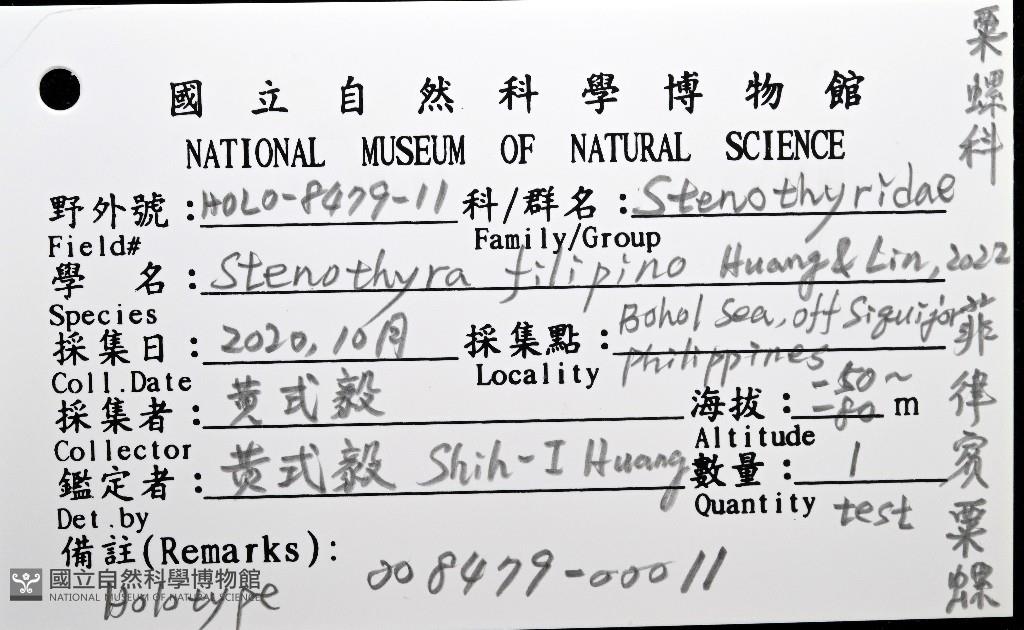 國立自然科學博物館
NATIONAL MUSEUM OF NATURAL SCIENCE
野外號：HOLO-8479-11 科/群名：Stenothyridae
Field# Family/Group
學 名：Stenothyra filipino Huang & Lin, 2022
Species
採集日：2020, 10月 採集點：Bohol sea, off Siquijor
philippines
Coll.Date Locality
採集者：黃式毅 海拔：-50～
-80 m
Collector Altitude
鑑定者：黃式毅 Shih-I Huang 數量：1
Det.by Quantity test
備註(Remarks)：
008479-00011
Holotype
國立自然科學博物館
NATIONAL MUSEUM OF NATURAL SCIENCE
粟螺科
菲律賓粟螺